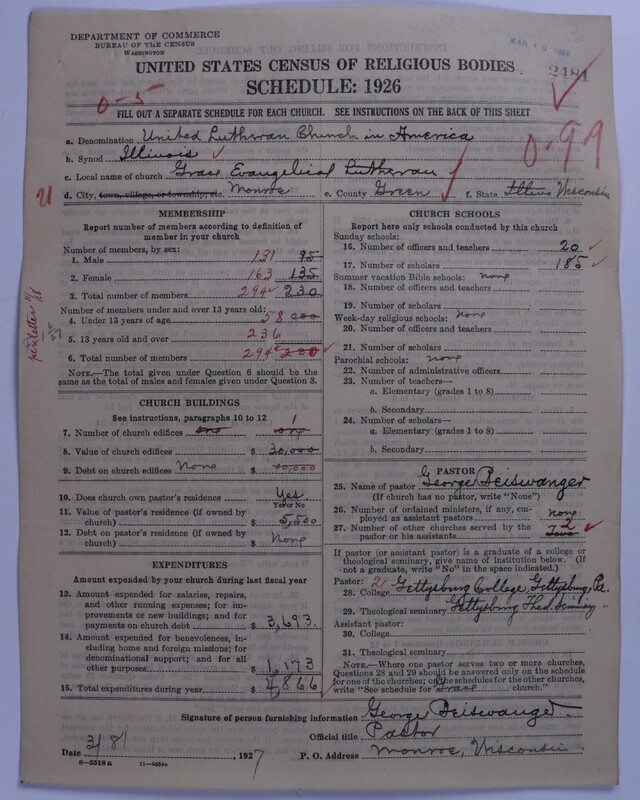 DEPARTMENT OF COMMERCE
BUREAU OF THE CENSUS
WASHINGTON
MAR 10 1927
2481
UNITED STATES CENSUS OF RELIGIOUS BODIES
SCHEDULE: 1926
0-5
FILL OUT A SEPARATE SCHEDULE FOR EACH CHURCH. SEE INSTRUCTIONS ON THE BACK OF THIS SHEET
0-99
a. Denomination United Lutheran Church in America
b. Synod Illinois
c. Local name of church Grace Evangelical Lutheran
d. City, town, village, or township, etc. Monroe e. County Green f. State Illinois Wisconsin
MEMBERSHIP
Report number of members according to definition of member in your church
Number of members, by sex:
1. Male 131 95
2. Female 163 135
3. Total number of members 294 230
Number of members under and over 13 years old:
4. Under 13 years of age 58 000
5. 13 years old and over 236
6. Total number of members 294 200
NOTE.—The total given under Question 6 should be the same as the total of males and females given under Question 3.
per letter
CHURCH BUILDINGS
See instructions, paragraphs 10 to 12
7. Number of church edifices one 1 one
8. Value of church edifices $ 30,000
9. Debt on church edifices None $ 00,000
10. Does church own pastor's residence Yes
Yes or No
11. Value of pastor's residence (if owned by church) $ 5,500
12. Debt on pastor's residence (if owned by church) $ None
EXPENDITURES
Amount expended by your church during last fiscal year
13. Amount expended for salaries, repairs, and other running expenses; for improvements or new buildings; and for payments on church debt $ 3,693.
14. Amount expended for benevolences, including home and foreign missions; for denominational support; and for all other purposes $ 1,173
15. Total expenditures during year $ 4,866
CHURCH SCHOOLS
Report here only schools conducted by this church
Sunday schools:
16. Number of officers and teachers 20
17. Number of scholars 185
Summer vacation Bible schools: None
18. Number of officers and teachers
19. Number of scholars
Week-day religious schools: None
20. Number of officers and teachers
21. Number of scholars
Parochial schools: None
22. Number of administrative officers
23. Number of teachers—
a. Elementary (grades 1 to 8)
b. Secondary
24. Number of scholars—
a. Elementary (grades 1 to 8)
b. Secondary
PASTOR
25. Name of pastor George Beiswanger
(If church has no pastor, write "None")
26. Number of ordained ministers, if any, employed as assistant pastors None
27. Number of other churches served by the pastor or his assistants 2
If pastor (or assistant pastor) is a graduate of a college or theological seminary, give name of institution below. (If not a graduate, write "No" in the space indicated.)
Pastor:
28. College Gettysburg College, Gettysburg, Pa.
29. Theological seminary Gettysburg Theo. Seminary
Assistant pastor:
30. College
31. Theological seminary
NOTE.—Where one pastor serves two or more churches, Questions 28 and 29 should be answered only on the schedule for one of the churches; on the schedules for the other churches, write "See schedule for Grace church."
Signature of person furnishing information George Beiswanger
Official title Pastor
Date 3/8/, 1927 P. O. Address Monroe, Wisconsin
8—5518 a 11—9054a